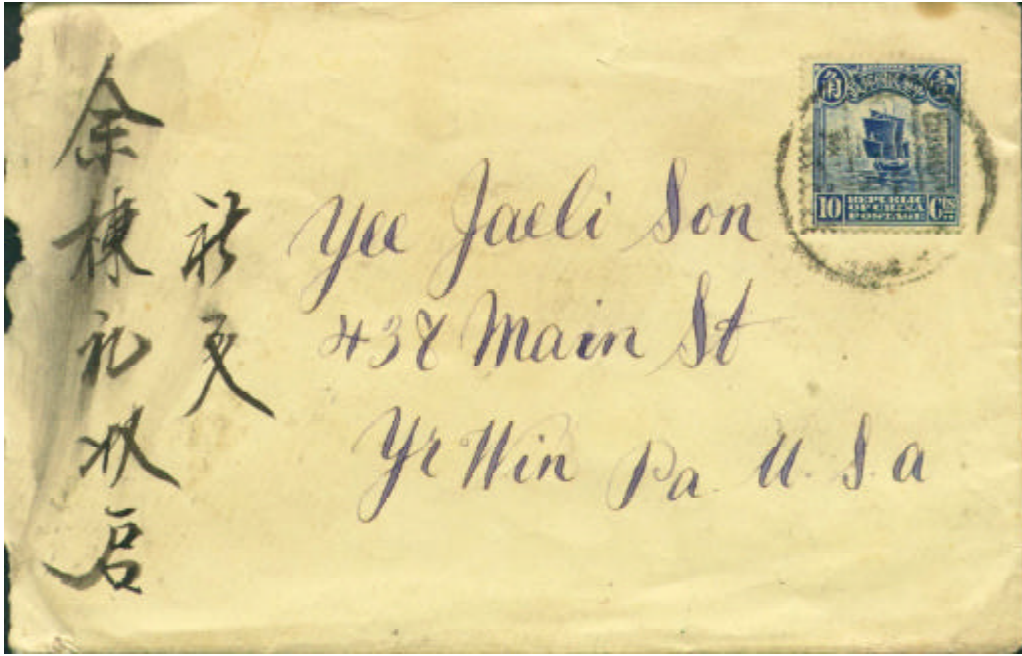 余棟礼收启
Yee Jaeli Son
438 Main St
Yr Win Pa. U. S. a
角
10 REPUBLIC CTS
OF CHINA
POSTAGE